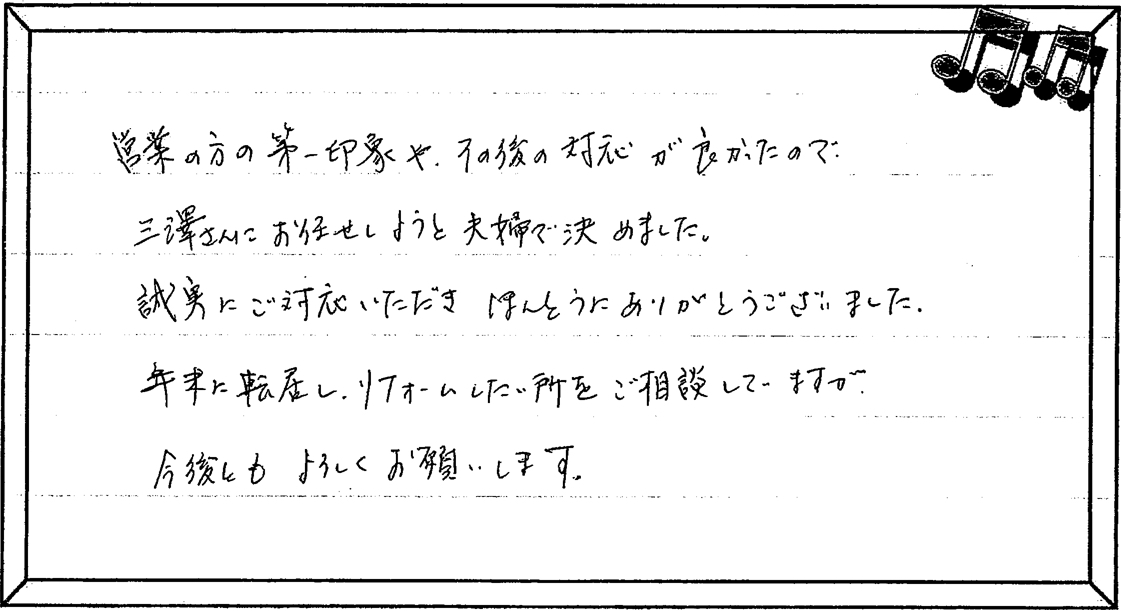 営業の方の第一印象や、その後の対応が良かったので
三澤さんにお任せしようと夫婦で決めました。
誠実にご対応いただき ほんとうにありがとうございました。
年末に転居し、リフォームしたい所をご相談していますが、
今後とも よろしくお願いします。